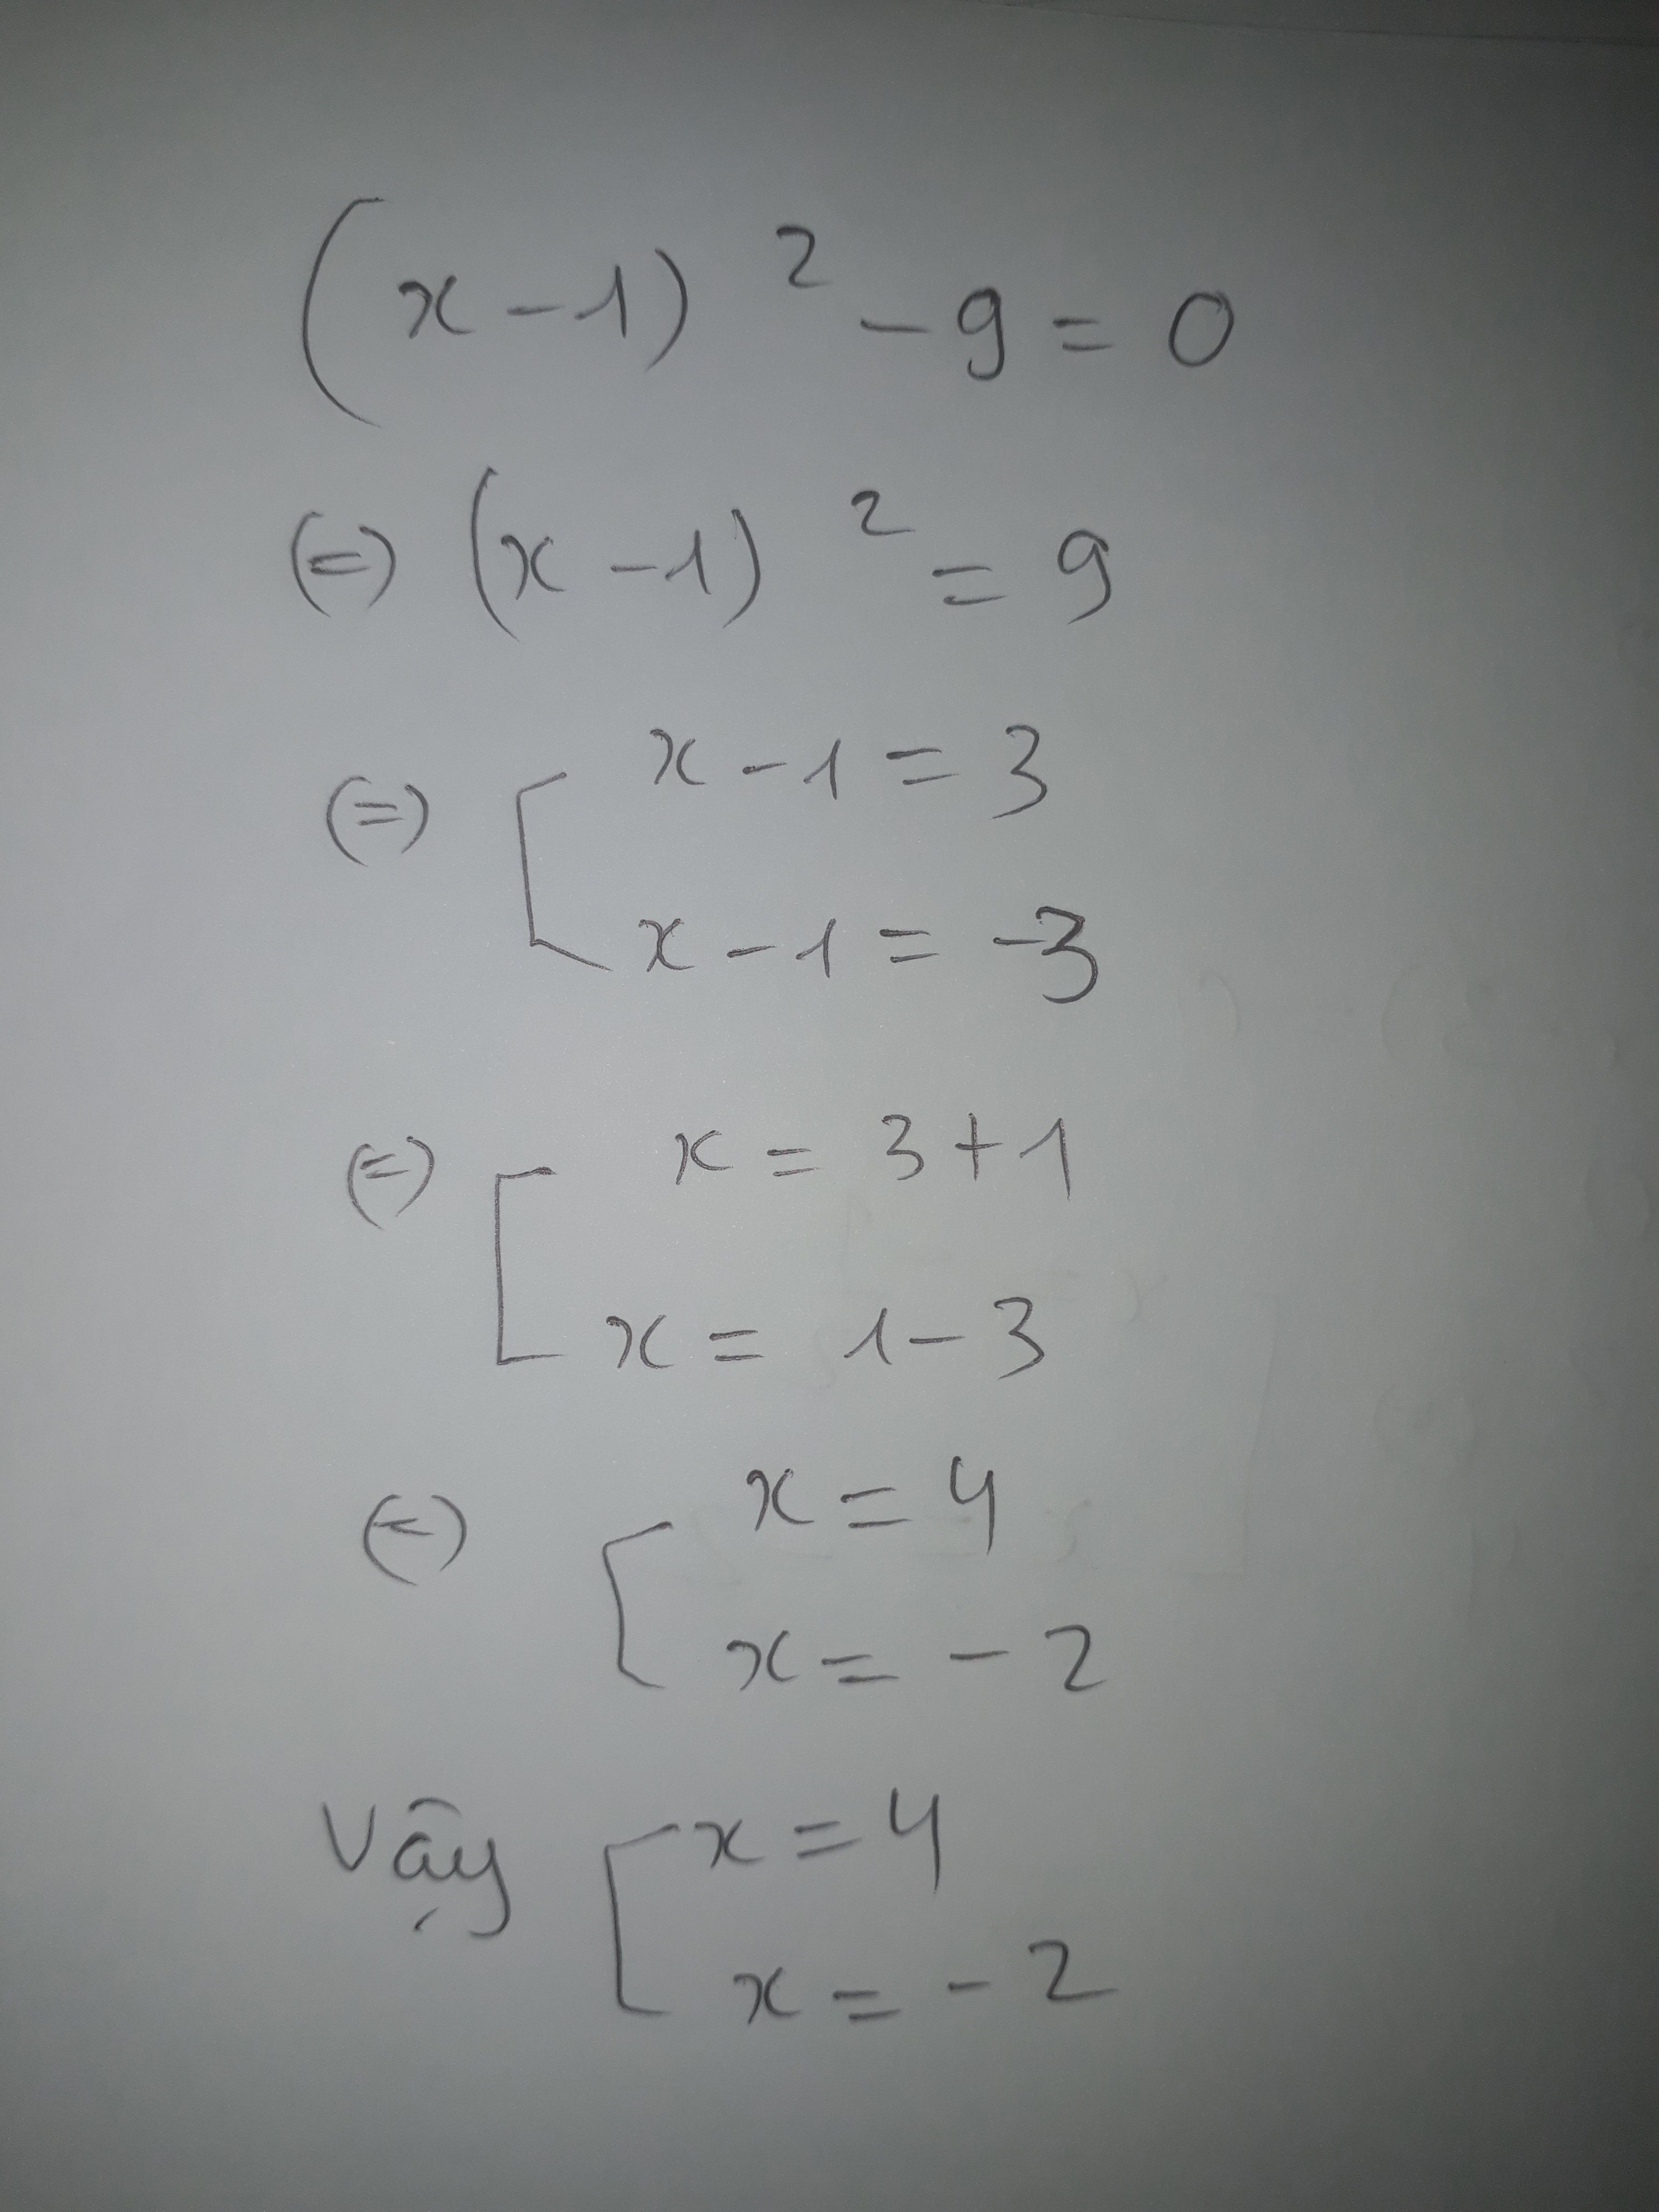 (x-1)² - 9 = 0
(=) (x-1)² = 9
(=) [ x - 1 = 3
x - 1 = -3
(=) [ x = 3 + 1
x = 1 - 3
(=) [ x = 4
x = - 2
Vậy [ x = 4
x = - 2